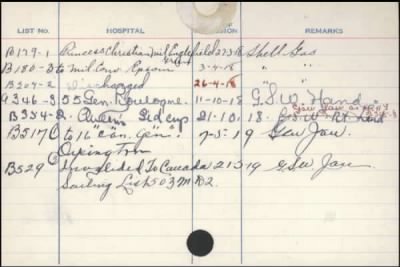 LIST No. HOSPITAL ADMISSION REMARKS
B179-1 Princess Christian Mil Englefield 27-3-18 Shell Gas
Green
B180-3 to Mil Con Epsom 3-4-18 "
B204-2 Discharged 26-4-18 "
9346-3 55 Gen. Boulogne. 11-10-18 G.S.W. Hand.
GSW Jaw
B354-2 Queens Sidcup 21.10.18.
B517 to 16" Can. Gen. 7-5-19 GSW Jaw.
Orpington
B529 Invalided To Canada 21 5 19 GSW Jaw
Sailing List 503 M D2.